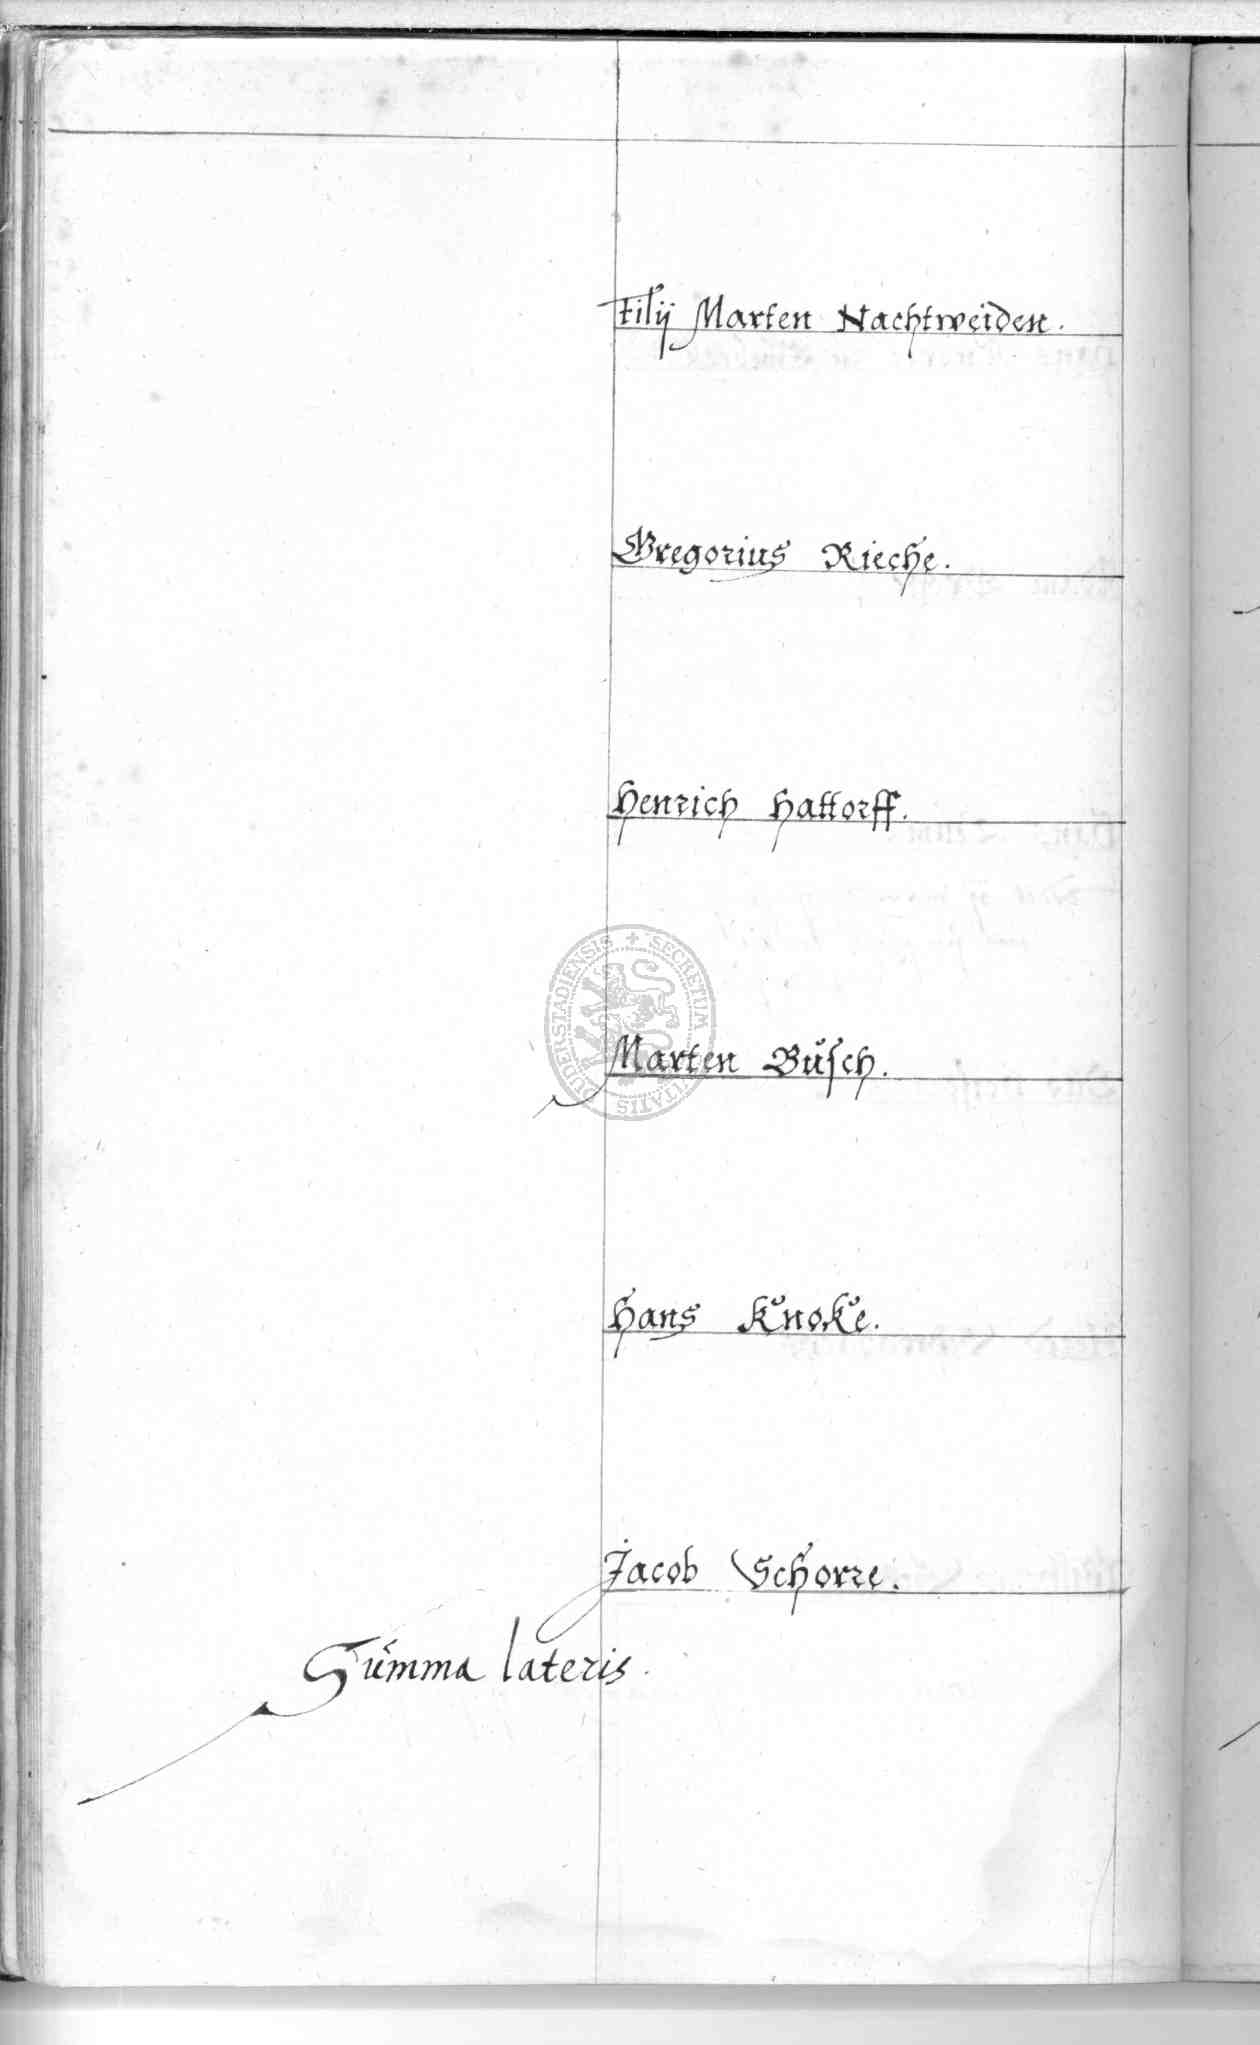 Filij Marten Nachtweiden.
Gregorius Rieche.
Henrich Hattorff.
SECRETUM CIVITATIS DUDERSTADIENSIS
Marten Bŭsch.
Hans Knoke.
Jacob Schorre.
Sŭmma lateris.